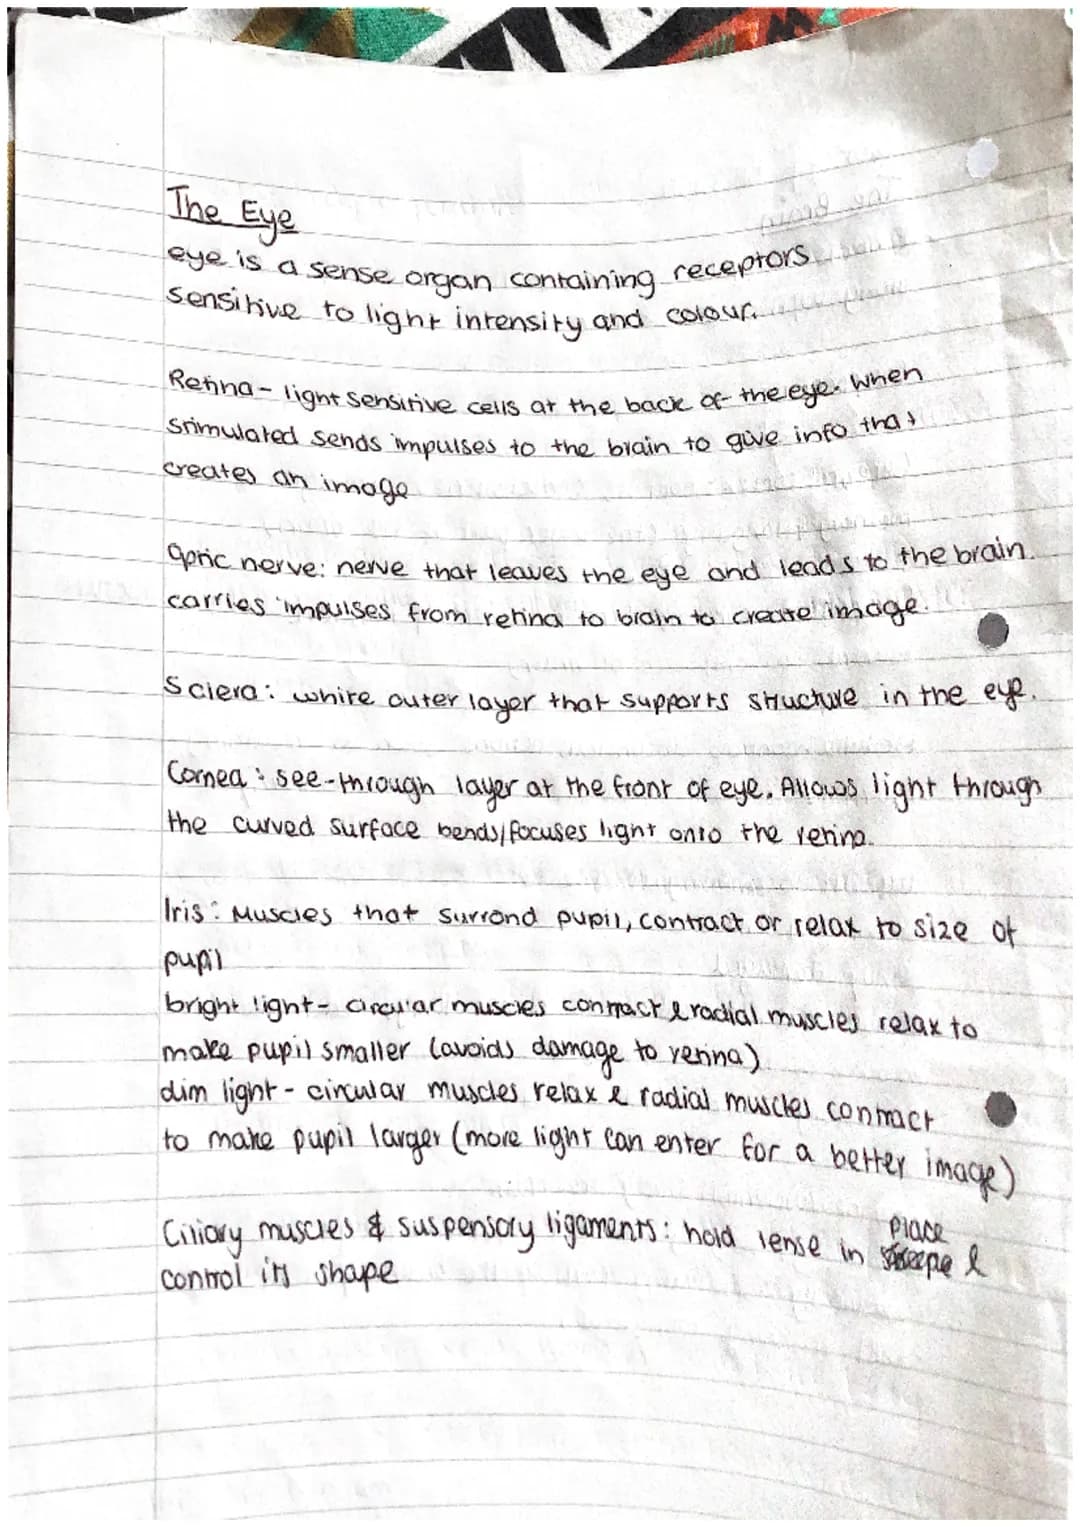 The Eye
eye is a sense organ containing receptors
sensitive to light intensity and colour.
Retina - light sensitive cells at the back of the eye. When
stimulated sends impulses to the brain to give info that
creates an image
Optic nerve: nerve that leaves the eye and leads to the brain.
carries impulses from retina to brain to create image.
Sclera: white outer layer that supports structure in the eye.
Cornea: see-through layer at the front of eye. Allows light through
the curved surface bends/focuses light onto the retina.
Iris: Muscles that surrond pupil, contract or relax to size of
pupil
bright light - circular muscles contract & radial muscles relax to
make pupil smaller (avoids damage to retina)
dim light - circular muscles relax & radial muscles contract
to make pupil larger (more light can enter for a better image)
Ciliary muscles & suspensory ligaments: hold lense in place &
control its shape